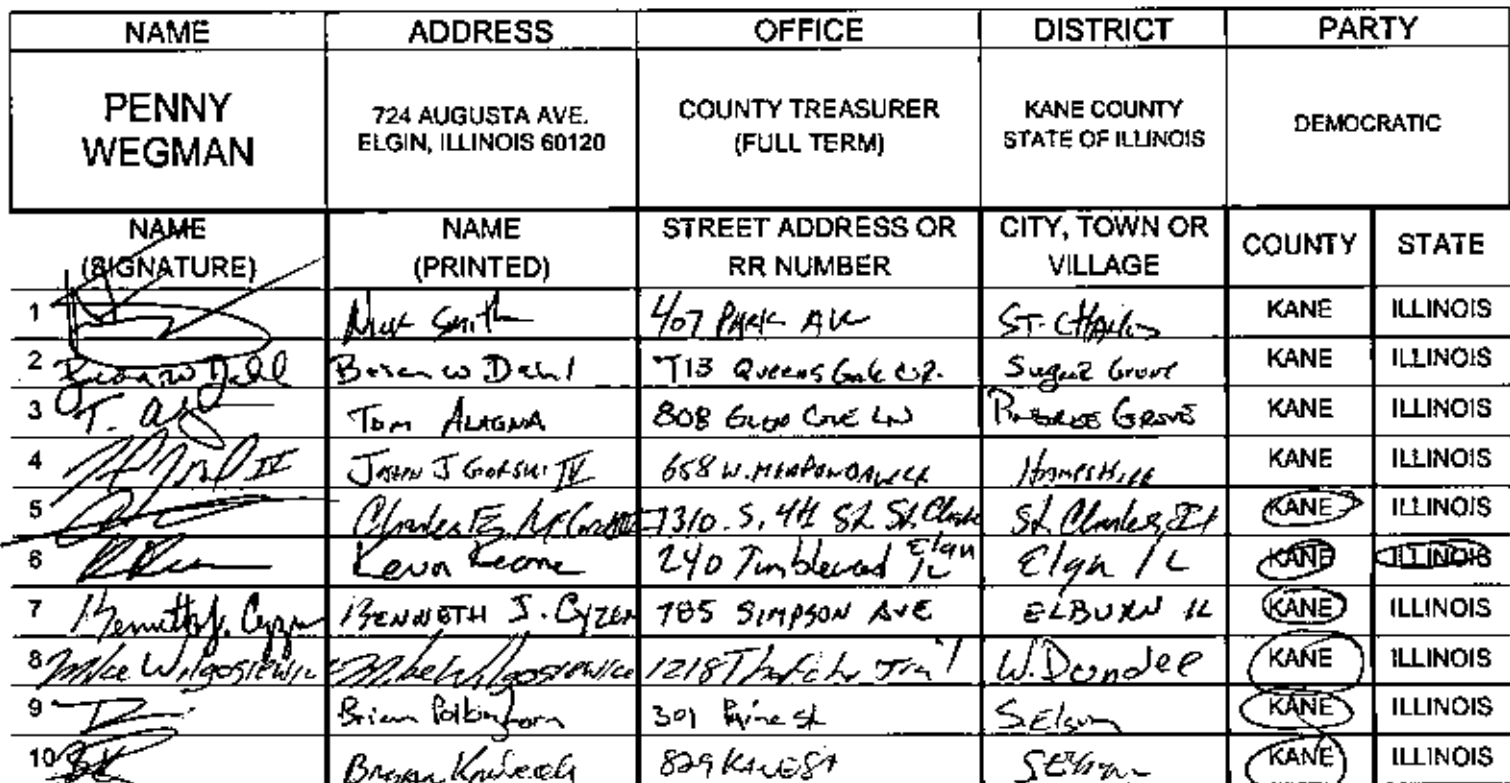 NAME ADDRESS OFFICE DISTRICT PARTY
PENNY WEGMAN 724 AUGUSTA AVE. ELGIN, ILLINOIS 60120 COUNTY TREASURER (FULL TERM) KANE COUNTY STATE OF ILLINOIS DEMOCRATIC
NAME (SIGNATURE) NAME (PRINTED) STREET ADDRESS OR RR NUMBER CITY, TOWN OR VILLAGE COUNTY STATE
1 Smith 407 PARK AVE ST. CHARLES KANE ILLINOIS
2 Brian W Dahl Brian W Dahl 713 Queens Gate Sugar Grove KANE ILLINOIS
3 T. Tom ALAGNA 808 COVE LN GROVE KANE ILLINOIS
4 IV JOHN J GORSKI IV 658 W. HAMPSHIRE KANE ILLINOIS
5 Charles E. 1310 S. 4th St St. Charles St. Charles, Il KANE ILLINOIS
6 Kevin Keane 240 Elgin IL Elgin IL KANE ILLINOIS
7 J. KENNETH J. CYZEN 785 SIMPSON AVE ELBURN IL KANE ILLINOIS
8 Mike Mike 1218 W. Dundee KANE ILLINOIS
9 Brian 301 St S Elgin KANE ILLINOIS
10 829 KANE ST S Elgin KANE ILLINOIS